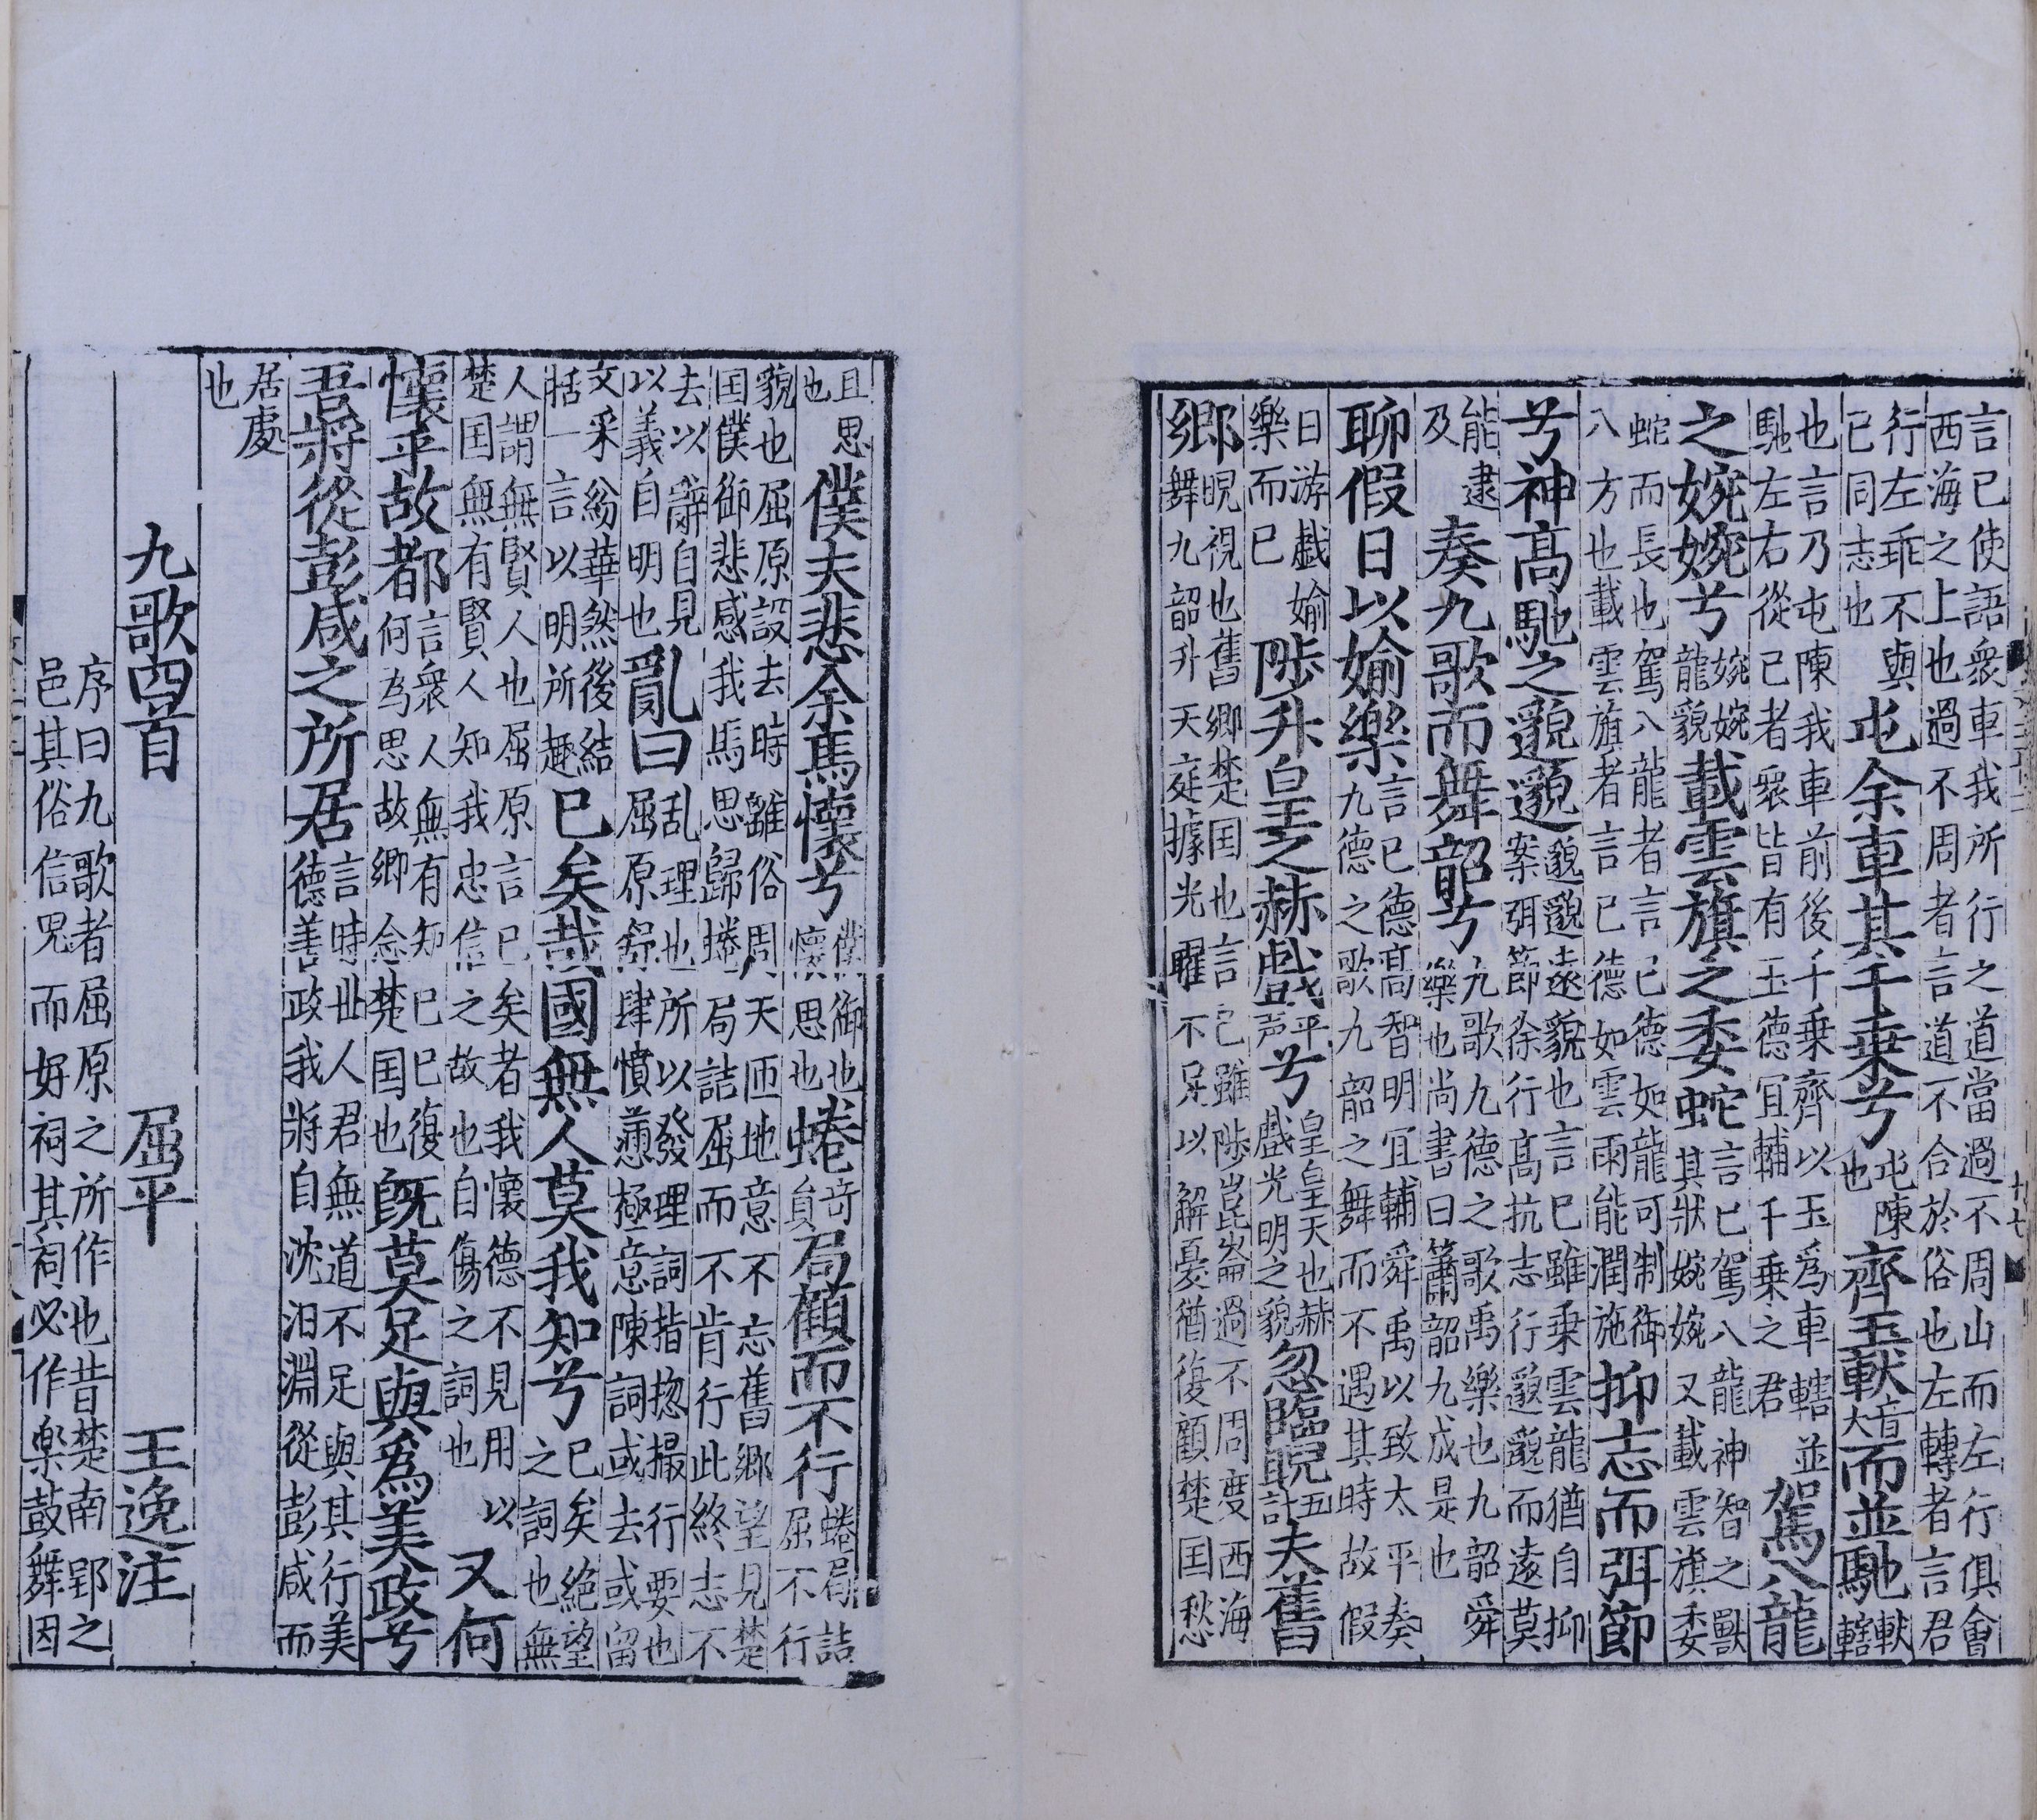 言已使語衆車我所行之道當過不周山而左行俱會
西海之上也過不周者言道不合於俗也左轉者言君
行左乖不與
已同志也
屯余車其千乗兮
屯陳
也
齊玉軑
音
大
而並馳
軑
轄
也言乃屯陳我車前後千乗齊以玉爲車轄並
馳左右從已者衆皆有玉德冝輔千乗之君
駕八龍
之婉婉兮
婉婉
龍貌
載雲旗之委蛇
言已駕八龍神智之獸
其狀婉婉又載雲旗委
蛇而長也駕八龍者言已德如龍可制御
八方也載雲旗者言已德如雲雨能潤施
抑志而弭節
兮神髙馳之邈邈
邈邈逺貌也言已雖乗雲龍猶自抑
案弭節徐行髙抗志行邈邈而逺莫
能逮
及
奏九歌而舞韶兮
九歌九德之歌禹樂也九韶舜
樂也尚書曰簫韶九成是也
聊假日以婾樂
言已德髙智明冝輔舜禹以致太平奏
九德之歌九韶之舞而不遇其時故假
日游戯婾
樂而已
陟升皇之赫戲
平
声
兮
皇皇天也赫
戲光明之貌
忽臨睨
五
計
夫舊
鄉
睨視也舊鄉楚国也言已雖陟崑崙過不周度西海
舞九韶升天庭據光曜不足以解憂猶復顧楚国愁
且思
也
僕夫悲余馬懷兮
僕御也
懷思也
蜷
奇
貟
局顧而不行
蜷局詰
屈不行
貌也屈原設去時離俗周天匝地意不忘舊鄉望見楚
国僕御悲感我馬思歸蜷局詰屈而不肯行此終志不
去以辭自見
以義自明也
亂曰
乱理也所以發理詞指揔撮行要也
屈原舒肆憤懣極意陳詞或去或留
文采紛華然後結
括一言以明所趣
已矣哉國無人莫我知兮
已矣絶望
之詞也無
人謂無賢人也屈原言已矣者我懷德不見用以
楚国無有賢人知我忠信之故也自傷之詞也
又何
懷乎故都
言衆人無有知已已復
何為思故鄉念楚国也
既莫足與爲美政兮
吾將從彭咸之所居
言時世人君無道不足與其行美
德善政我將自沈汨淵從彭咸而
居處
也
九歌四首 屈平 王逸注
序曰九歌者屈原之所作也昔楚南郢之
邑其俗信鬼而好祠其祠必作楽鼓舞因